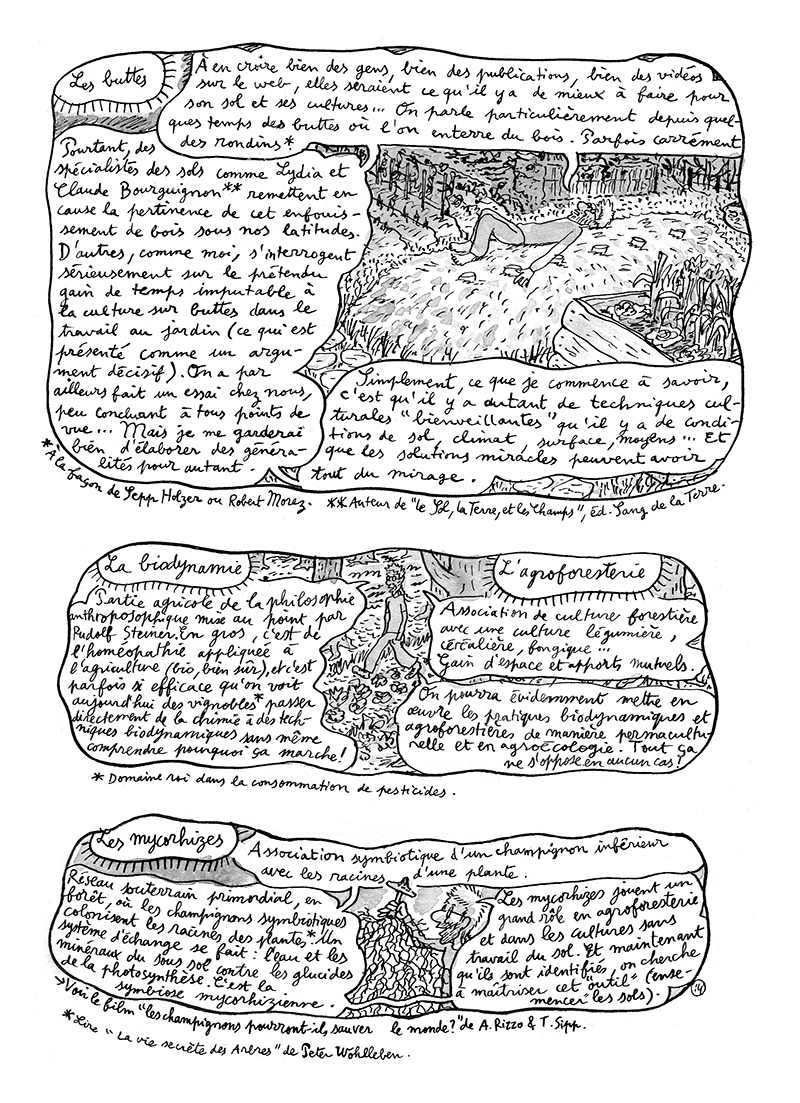 Les buttes
À en croire bien des gens, bien des publications, bien des vidéos
sur le web, elles seraient ce qu'il y a de mieux à faire pour
son sol et ses cultures... On parle particulièrement depuis quel-
ques temps des buttes où l'on enterre du bois. Parfois carrément
des rondins*.
Pourtant, des
spécialistes des sols comme Lydia et
Claude Bourguignon** remettent en
cause la pertinence de cet enfouis-
sement de bois sous nos latitudes.
D'autres, comme moi, s'interrogent
sérieusement sur le prétendu
gain de temps imputable à
la culture sur buttes dans le
travail au jardin (ce qui est
présenté comme un argu-
ment décisif). On a par
ailleurs fait un essai chez nous,
peu concluant à tous points de
vue... Mais je me garderai
bien d'élaborer des généra-
lités pour autant.
Simplement, ce que je commence à savoir,
c'est qu'il y a autant de techniques cul-
turales "bienveillantes" qu'il y a de condi-
tions de sol, climat, surface, moyens... Et
que les solutions miracles peuvent avoir
tout du mirage.
*À la façon de Sepp Holzer ou Robert Morez. ** Auteur de "le Sol, la Terre, et les Champs", éd. Sang de la Terre.
La biodynamie
Partie agricole de la philosophie
anthroposophique mise au point par
Rudolf Steiner. En gros, c'est de
l'homéopathie appliquée à
l'agriculture (bio, bien sûr), et c'est
parfois si efficace qu'on voit
aujourd'hui des vignobles* passer
directement de la chimie à des tech-
niques biodynamiques sans même
comprendre pourquoi ça marche!
L'agroforesterie
Association de culture forestière
avec une culture légumière,
céréalière, fongique...
Gain d'espace et apports mutuels.
On pourra évidemment mettre en
œuvre les pratiques biodynamiques et
agroforestières de manière permacultu-
relle et en agroécologie. Tout ça
ne s'oppose en aucun cas!
* Domaine roi dans la consommation de pesticides.
Les mycorhizes
Association symbiotique d'un champignon inférieur
avec les racines d'une plante.
Réseau souterrain primordial, en
forêt, où les champignons symbiotiques
colonisent les racines des plantes*. Un
système d'échange se fait : l'eau et les
minéraux du sous sol contre les glucides
de la photosynthèse. C'est la
symbiose mycorhizienne.
Les mycorhizes jouent un
grand rôle en agroforesterie
et dans les cultures sans
travail du sol. Et maintenant
qu'ils sont identifiés, on cherche
à maîtriser cet "outil" (ense-
mencer les sols).
→Voir le film "les champignons pourront-ils sauver le monde?" de A. Rizzo & T. Sipp.
*Lire "La vie secrète des Arbres" de Peter Wohlleben.